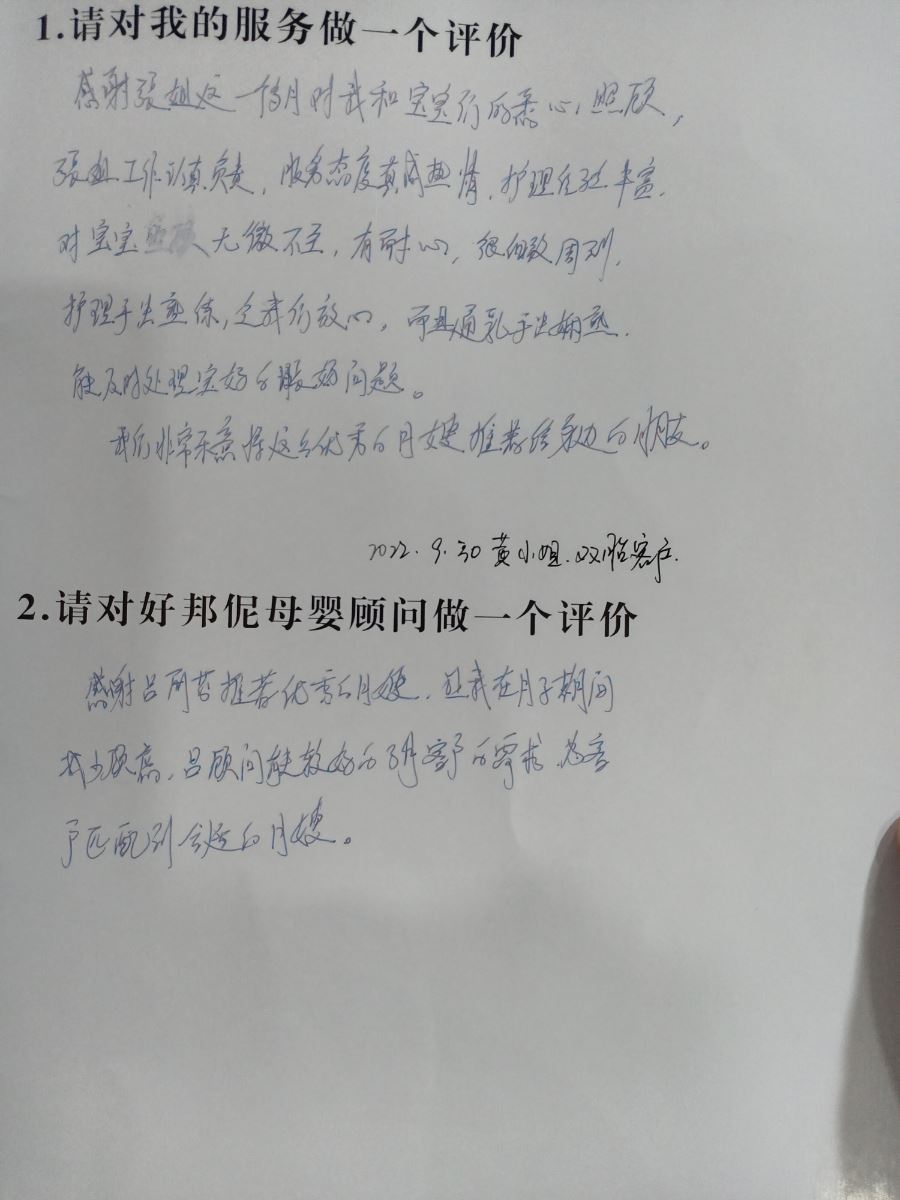 1.请对我的服务做一个评价
感谢张姐这一个月对我和宝宝们的悉心照顾，
张姐工作认真负责，服务态度真诚热情，护理经验丰富，
对宝宝照顾无微不至，有耐心，很细致周到，
护理手法熟练，让我们放心，而且通乳手法娴熟，
能及时处理宝妈的服奶问题。
我们非常乐意将这么优秀的月嫂推荐给身边的朋友。
2022.9.30 黄小姐.双胎客户.
2.请对好邦伲母婴顾问做一个评价
感谢吕顾问推荐优秀的月嫂，让我在月子期间
减少烦忧，吕顾问能较好的了解客户的需求，为客
户匹配到合适的月嫂。